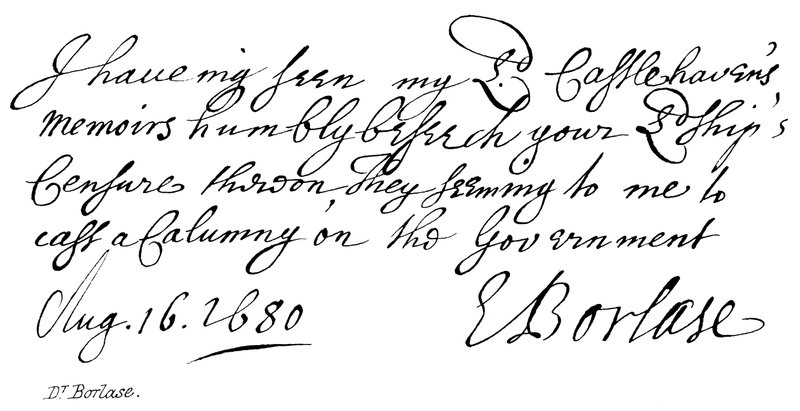 I haueing seen my Ld Castlehaven's
Memoirs humbly beseech your Ldship's
Censure thereon, They seeming to me to
cast a Calumny on the Government
Aug. 16. 1680 E Borlase
Dr Borlase.